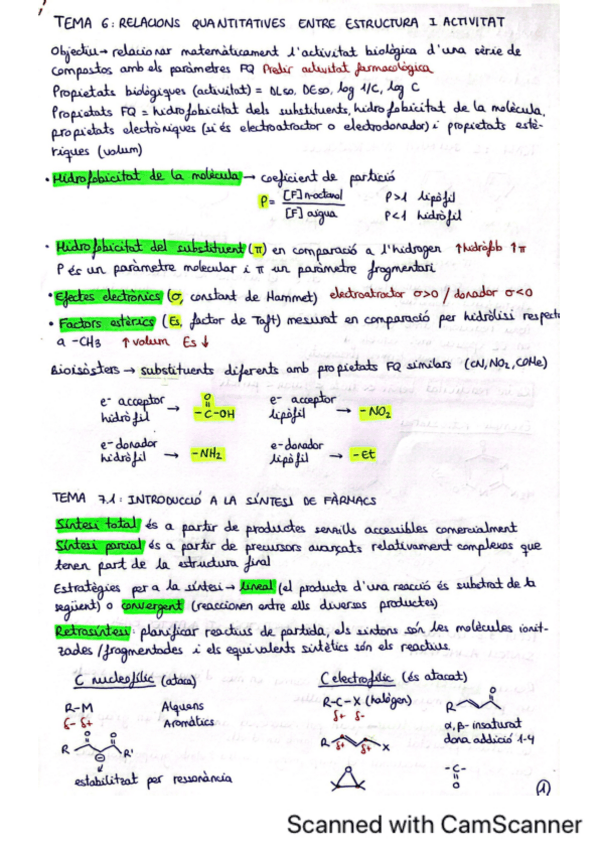 TEMA 6: RELACIONS QUANTITATIVES ENTRE ESTRUCTURA I ACTIVITAT
Objectiu → relacionar matemàticament l'activitat biològica d'una sèrie de
compostos amb els paràmetres FQ Predir activitat farmacològica
Propietats biològiques (activitat) = DL50, DE50, log 1/C, log C
Propietats FQ = hidrofobicitat dels substituents, hidrofobicitat de la molècula,
propietats electròniques (si és electroatractor o electrodonador) i propietats estè-
riques (volum)
• Hidrofobicitat de la molècula → coeficient de partició
P = [F] n-octanol / [F] aigua
P>1 lipòfil
P<1 hidròfil
• Hidrofobicitat del substituent (π) en comparació a l'hidrogen ↑hidròfob ↑π
P és un paràmetre molecular i π un paràmetre fragmentari
• Efectes electrònics (σ, constant de Hammet) electroatractor σ>0 / donador σ<0
• Factors estèrics (Es, factor de Taft) mesurat en comparació per hidròlisi respecte
a -CH3 ↑ volum Es ↓
Bioisòsters → substituents diferents amb propietats FQ similars (CN, NO2, COMe)
e- acceptor hidròfil → -C-OH
O
e- acceptor lipòfil → -NO2
e- donador hidròfil → -NH2
e- donador lipòfil → -Et
TEMA 7.1: INTRODUCCIÓ A LA SÍNTESI DE FÀRMACS
Síntesi total és a partir de productes senzills accessibles comercialment
Síntesi parcial és a partir de precursors avançats relativament complexos que
tenen part de la estructura final
Estratègies per a la síntesi → lineal (el producte d'una reacció és substrat de la
següent) o convergent (reaccionen entre ells diversos productes)
Retrosíntesi: planificar reactius de partida, els sintons són les molècules ionit-
zades/fragmentades i els equivalents sintètics són els reactius.
C nucleofílic (ataca)
C electrofílic (és atacat)
R-M
δ- δ+
Alquens
Aromàtics
R-C-X (halògen)
δ+ δ-
R
O
α, β- insaturat
dona addició 1-4
O O
R R'
⊖
estabilitzat per ressonància
R δ+ δ+ X
O
-C-
O
(1)
Scanned with CamScanner